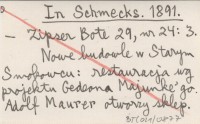 In Schmecks. 1891.
— Zipser Bote 29, nr 24: 3.
Nowe budowle w Starym
Smokowcu: restauracja wg
projektu Gedeona Majunke'go.
Adolf Maurer otworzy sklep.